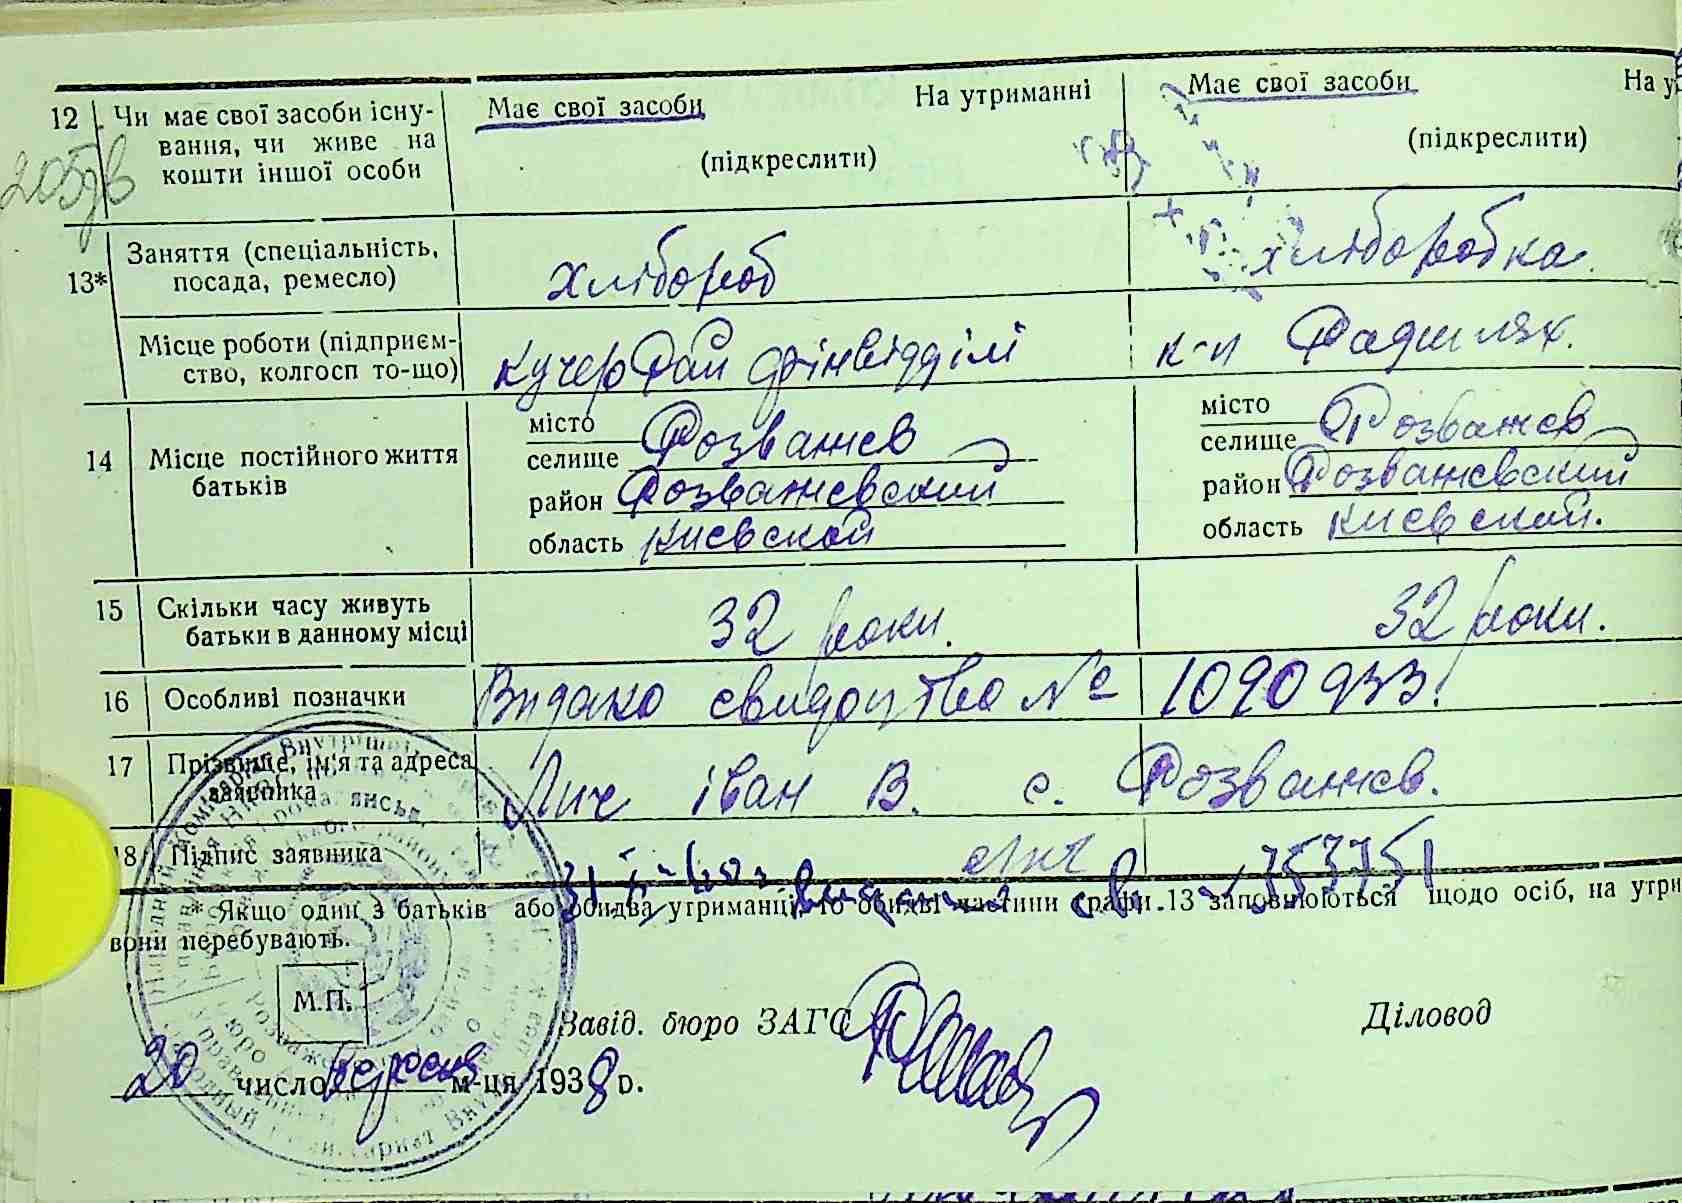 12 Чи має свої засоби існу- Має свої засоби На утриманні Має свої засоби На у
вання, чи живе на (підкреслити) (підкреслити)
кошти іншої особи
13* Заняття (спеціальність, хлібороб хліборобка
посада, ремесло)
Місце роботи (підприєм- кучер Рай фінвідділі к-п Радшлях.
ство, колгосп то-що)
14 Місце постійного життя місто місто
батьків селище Розважев селище Розважев
район Розважевский район Розважевский
область киевской область киевской.
15 Скільки часу живуть 32 роки. 32 роки.
батьки в данному місці
16 Особливі позначки Видано свидоцтво № 1090933.
17 Прізвище, ім'я та адреса Лич іван В. с. Розважев.
заявника
18 Підпис заявника
* Якщо один з батьків або обидва утриманці, то обидві частини графи 13 заповнюються щодо осіб, на утри
вони перебувають.
М.П.
Завід. бюро ЗАГС Діловод
20 число вересня м-ця 1938 р.